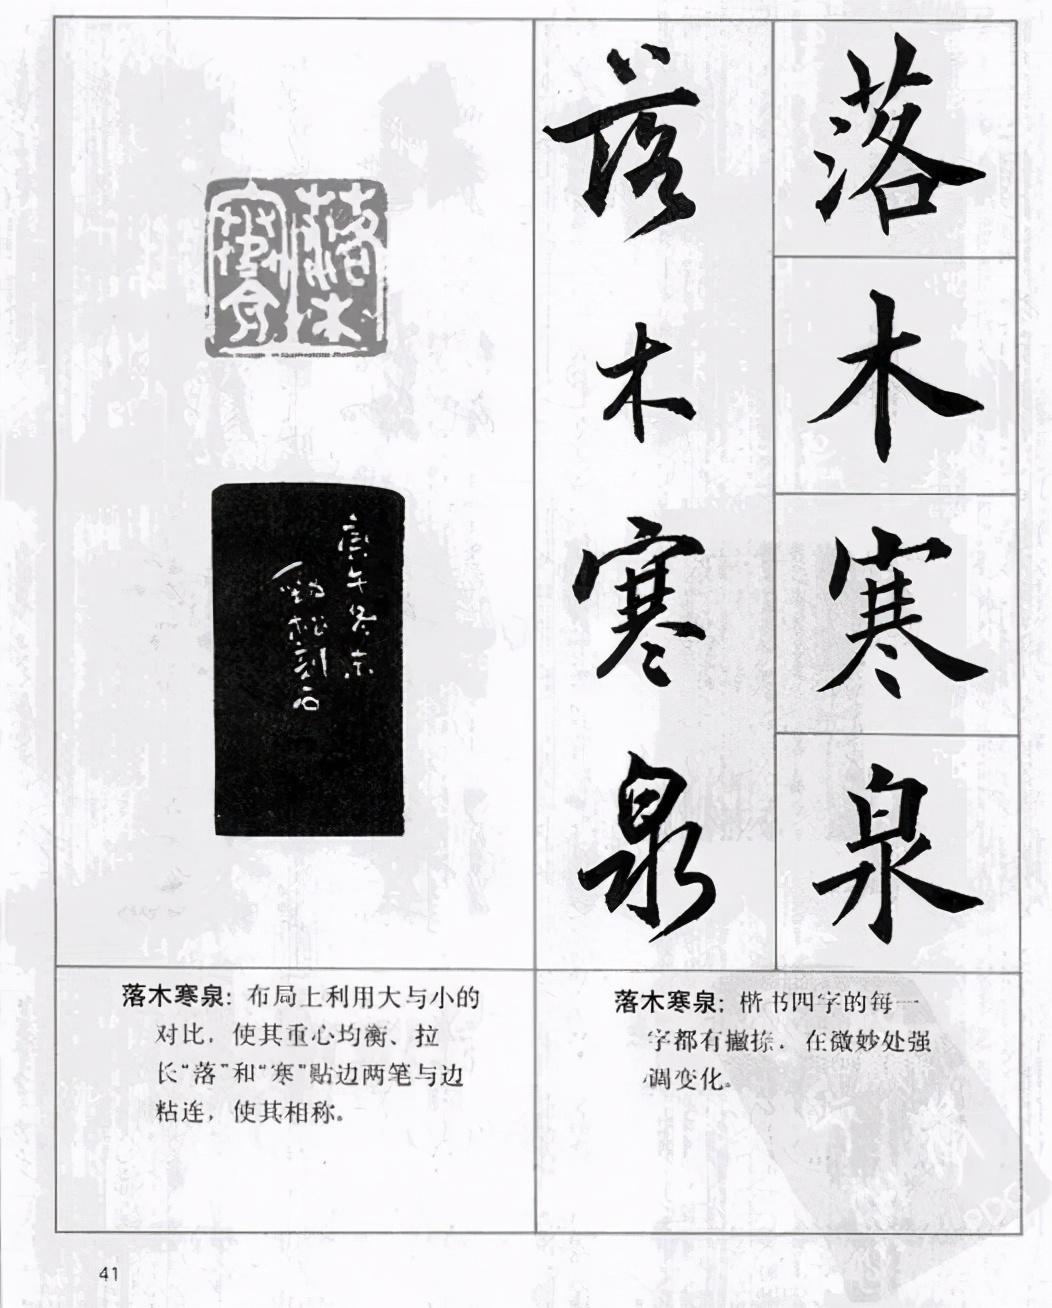 落木寒泉
落木寒泉
落木寒泉
庚午冬末
勁松刻石
落木寒泉：布局上利用大与小的
对比，使其重心均衡、拉
长“落”和“寒”贴边两笔与边
粘连，使其相称。
落木寒泉：楷书四字的每一
字都有撇捺，在微妙处强
调变化。
41
PDG